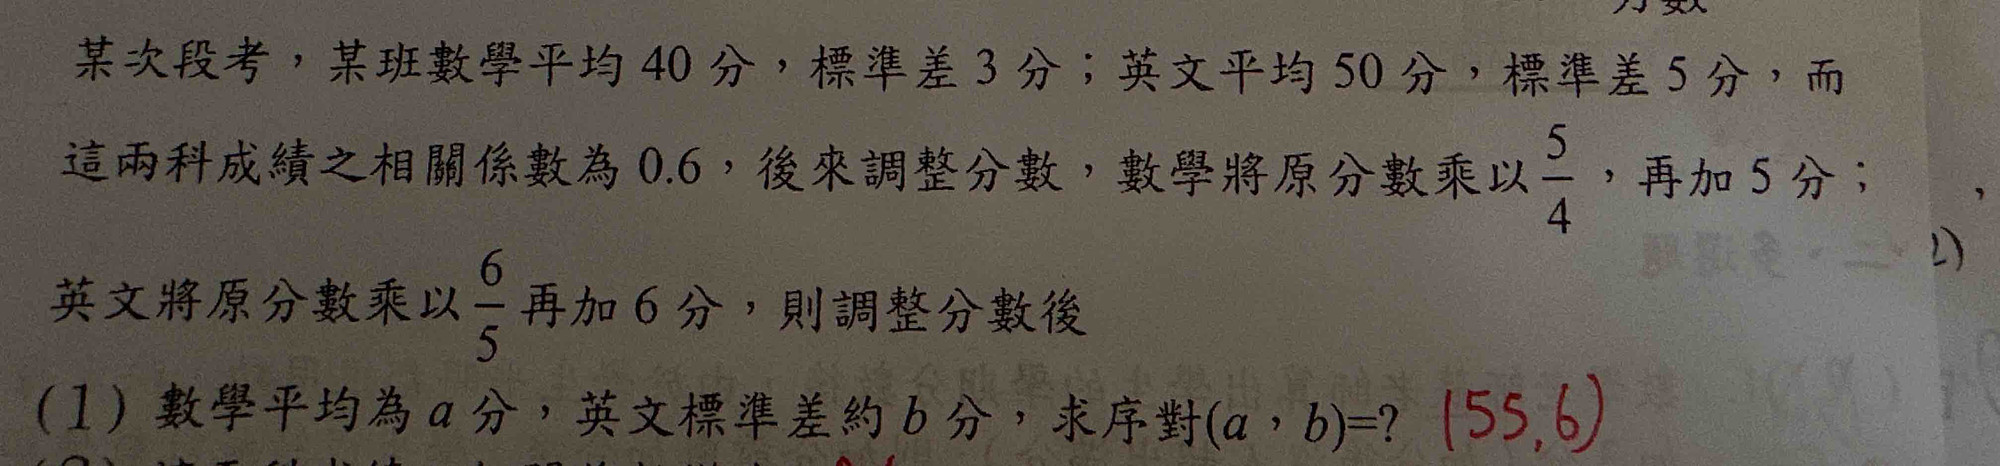 某次段考，某班數學平均 40 分，標準差 3 分；英文平均 50 分，標準差 5 分，而
這兩科成績之相關係數為 0.6，後來調整分數，數學將原分數乘以 5/4，再加 5 分；
英文將原分數乘以 6/5 再加 6 分，則調整分數後
(1) 數學平均為 a 分，英文標準差約 b 分，求序對(a，b)=? (55,6)